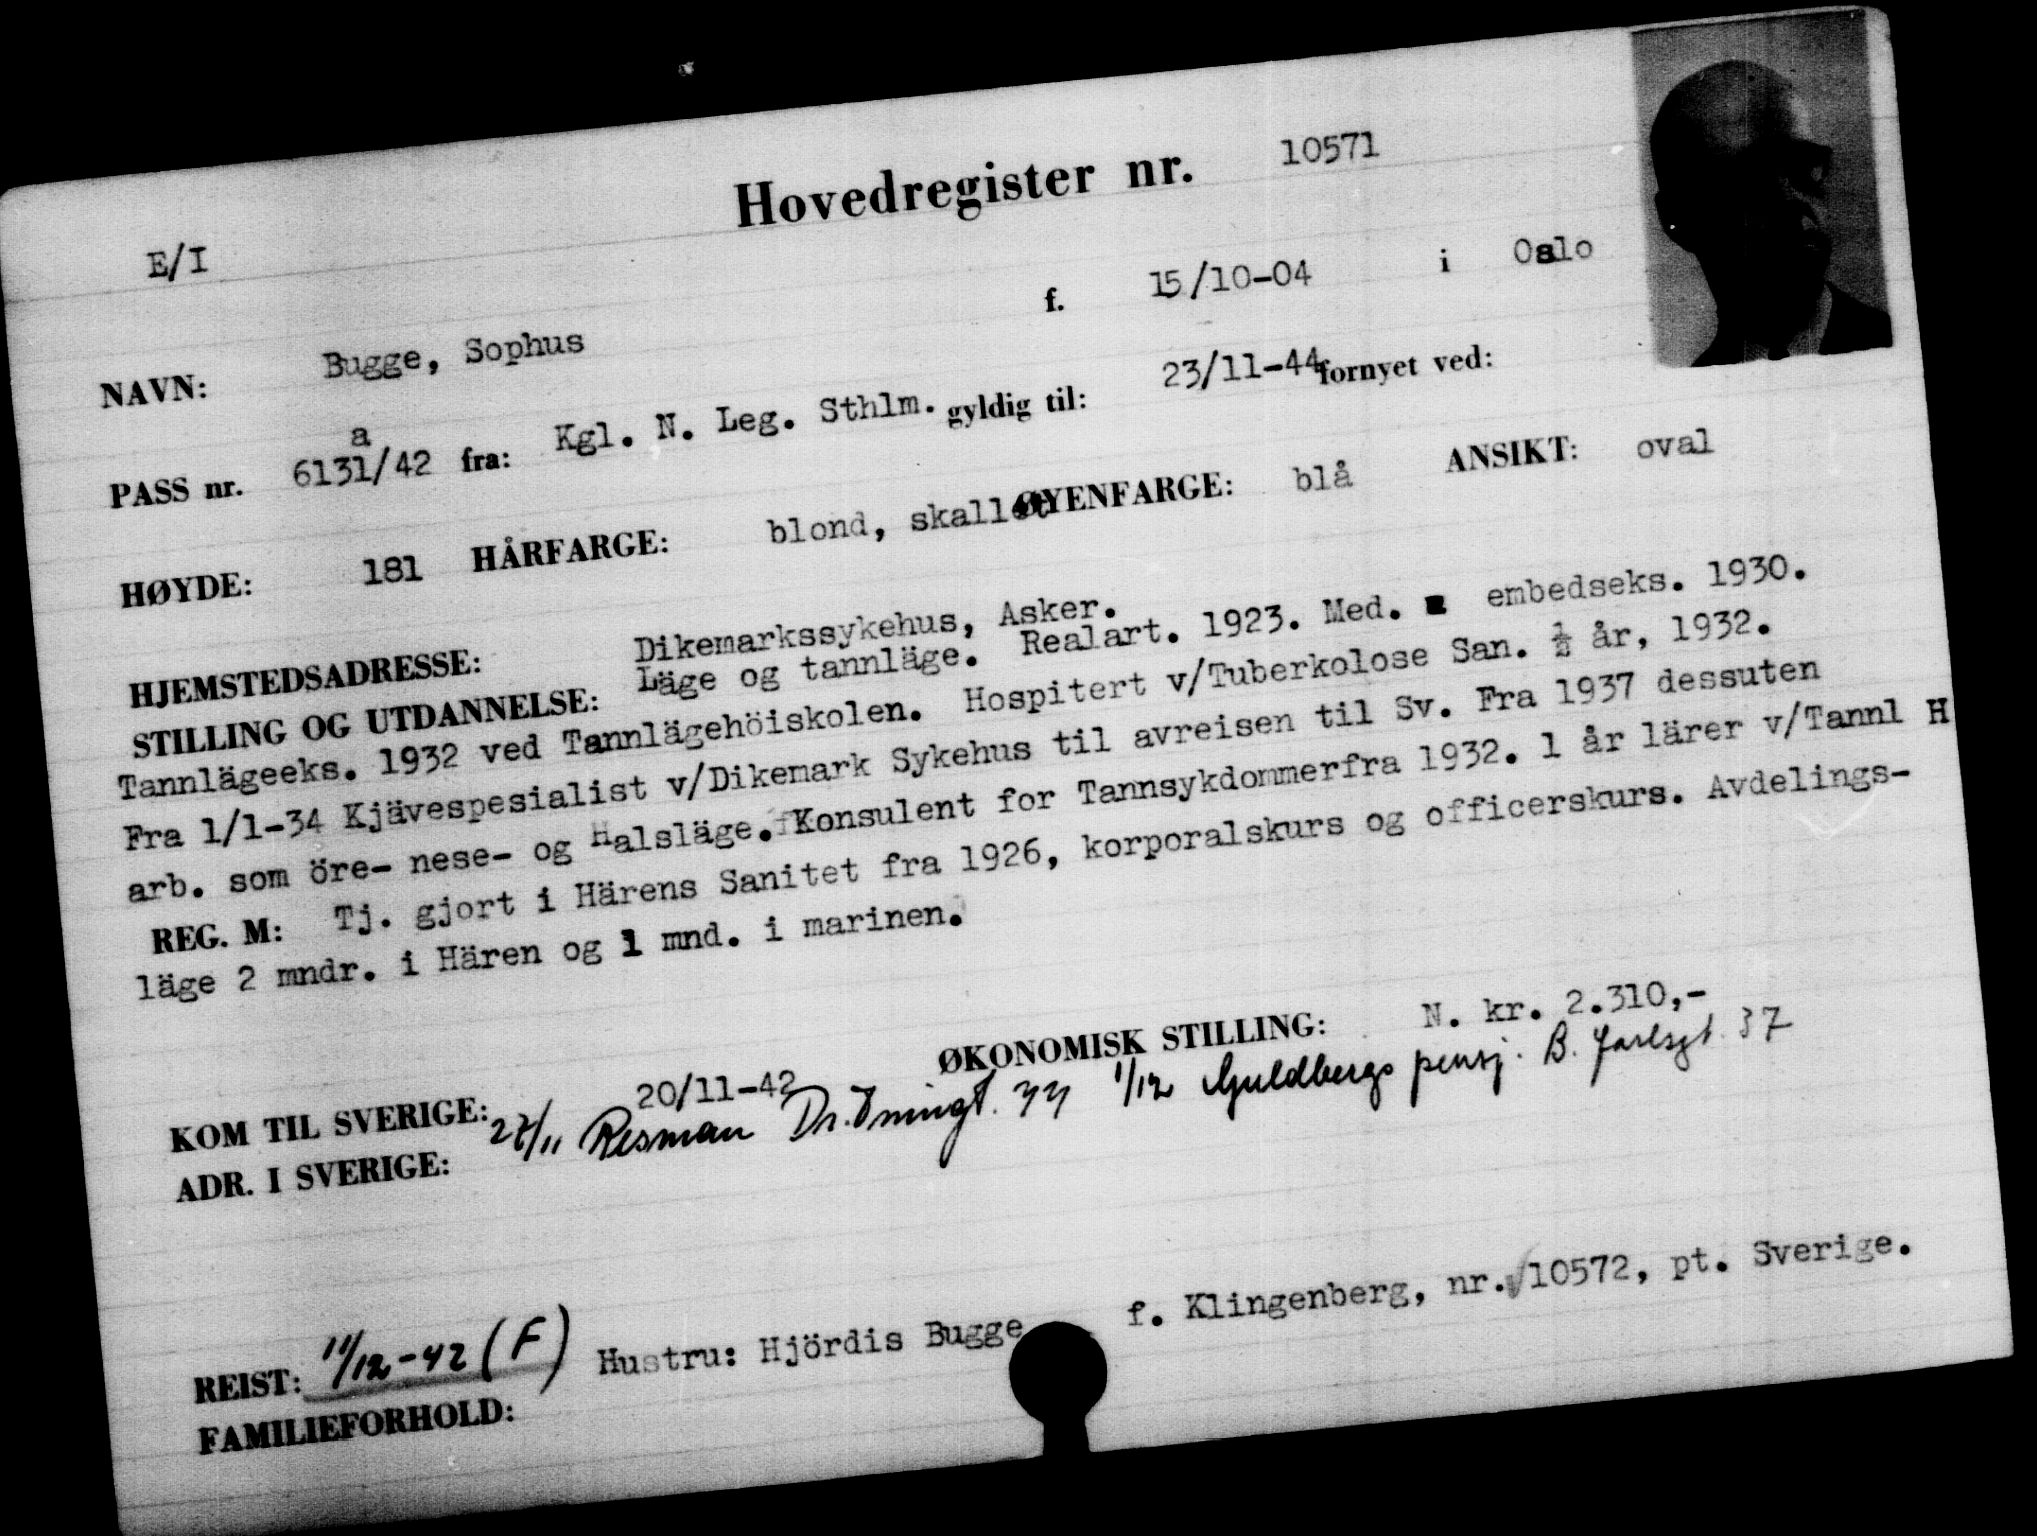 Hovedregister nr. 10571
E/I
NAVN: Bugge, Sophus f. 15/10-04 i Oslo
PASS nr. 6131a/42 fra: Kgl. N. Leg. Sthlm. gyldig til: 23/11-44 fornyet ved:
HØYDE: 181 HÅRFARGE: blond, skallet ØYENFARGE: blå ANSIKT: oval
HJEMSTEDSADRESSE: Dikemarkssykehus, Asker.
STILLING OG UTDANNELSE: Läge og tannläge. Realart. 1923. Med. embedseks. 1930.
Tannlägeeks. 1932 ved Tannlägehöiskolen. Hospitert v/Tuberkolose San. ½ år, 1932.
Fra 1/1-34 Kjävespesialist v/Dikemark Sykehus til avreisen til Sv. Fra 1937 dessuten
arb. som öre- nese- og Halsläge. Konsulent for Tannsykdommerfra 1932. 1 år lärer v/Tannl H
REG. M: Tj. gjort i Härens Sanitet fra 1926, korporalskurs og officerskurs. Avdelings-
läge 2 mndr. i Hären og 1 mnd. i marinen.
ØKONOMISK STILLING: N. kr. 2.310,-
KOM TIL SVERIGE: 20/11-42
ADR. I SVERIGE: 27/11 Resman 1/12 Guldbergs pensj. B. Jarlsgt. 37
REIST: 11/12-42 (F)
FAMILIEFORHOLD: Hustru: Hjördis Bugge f. Klingenberg, nr. 10572, pt. Sverige.